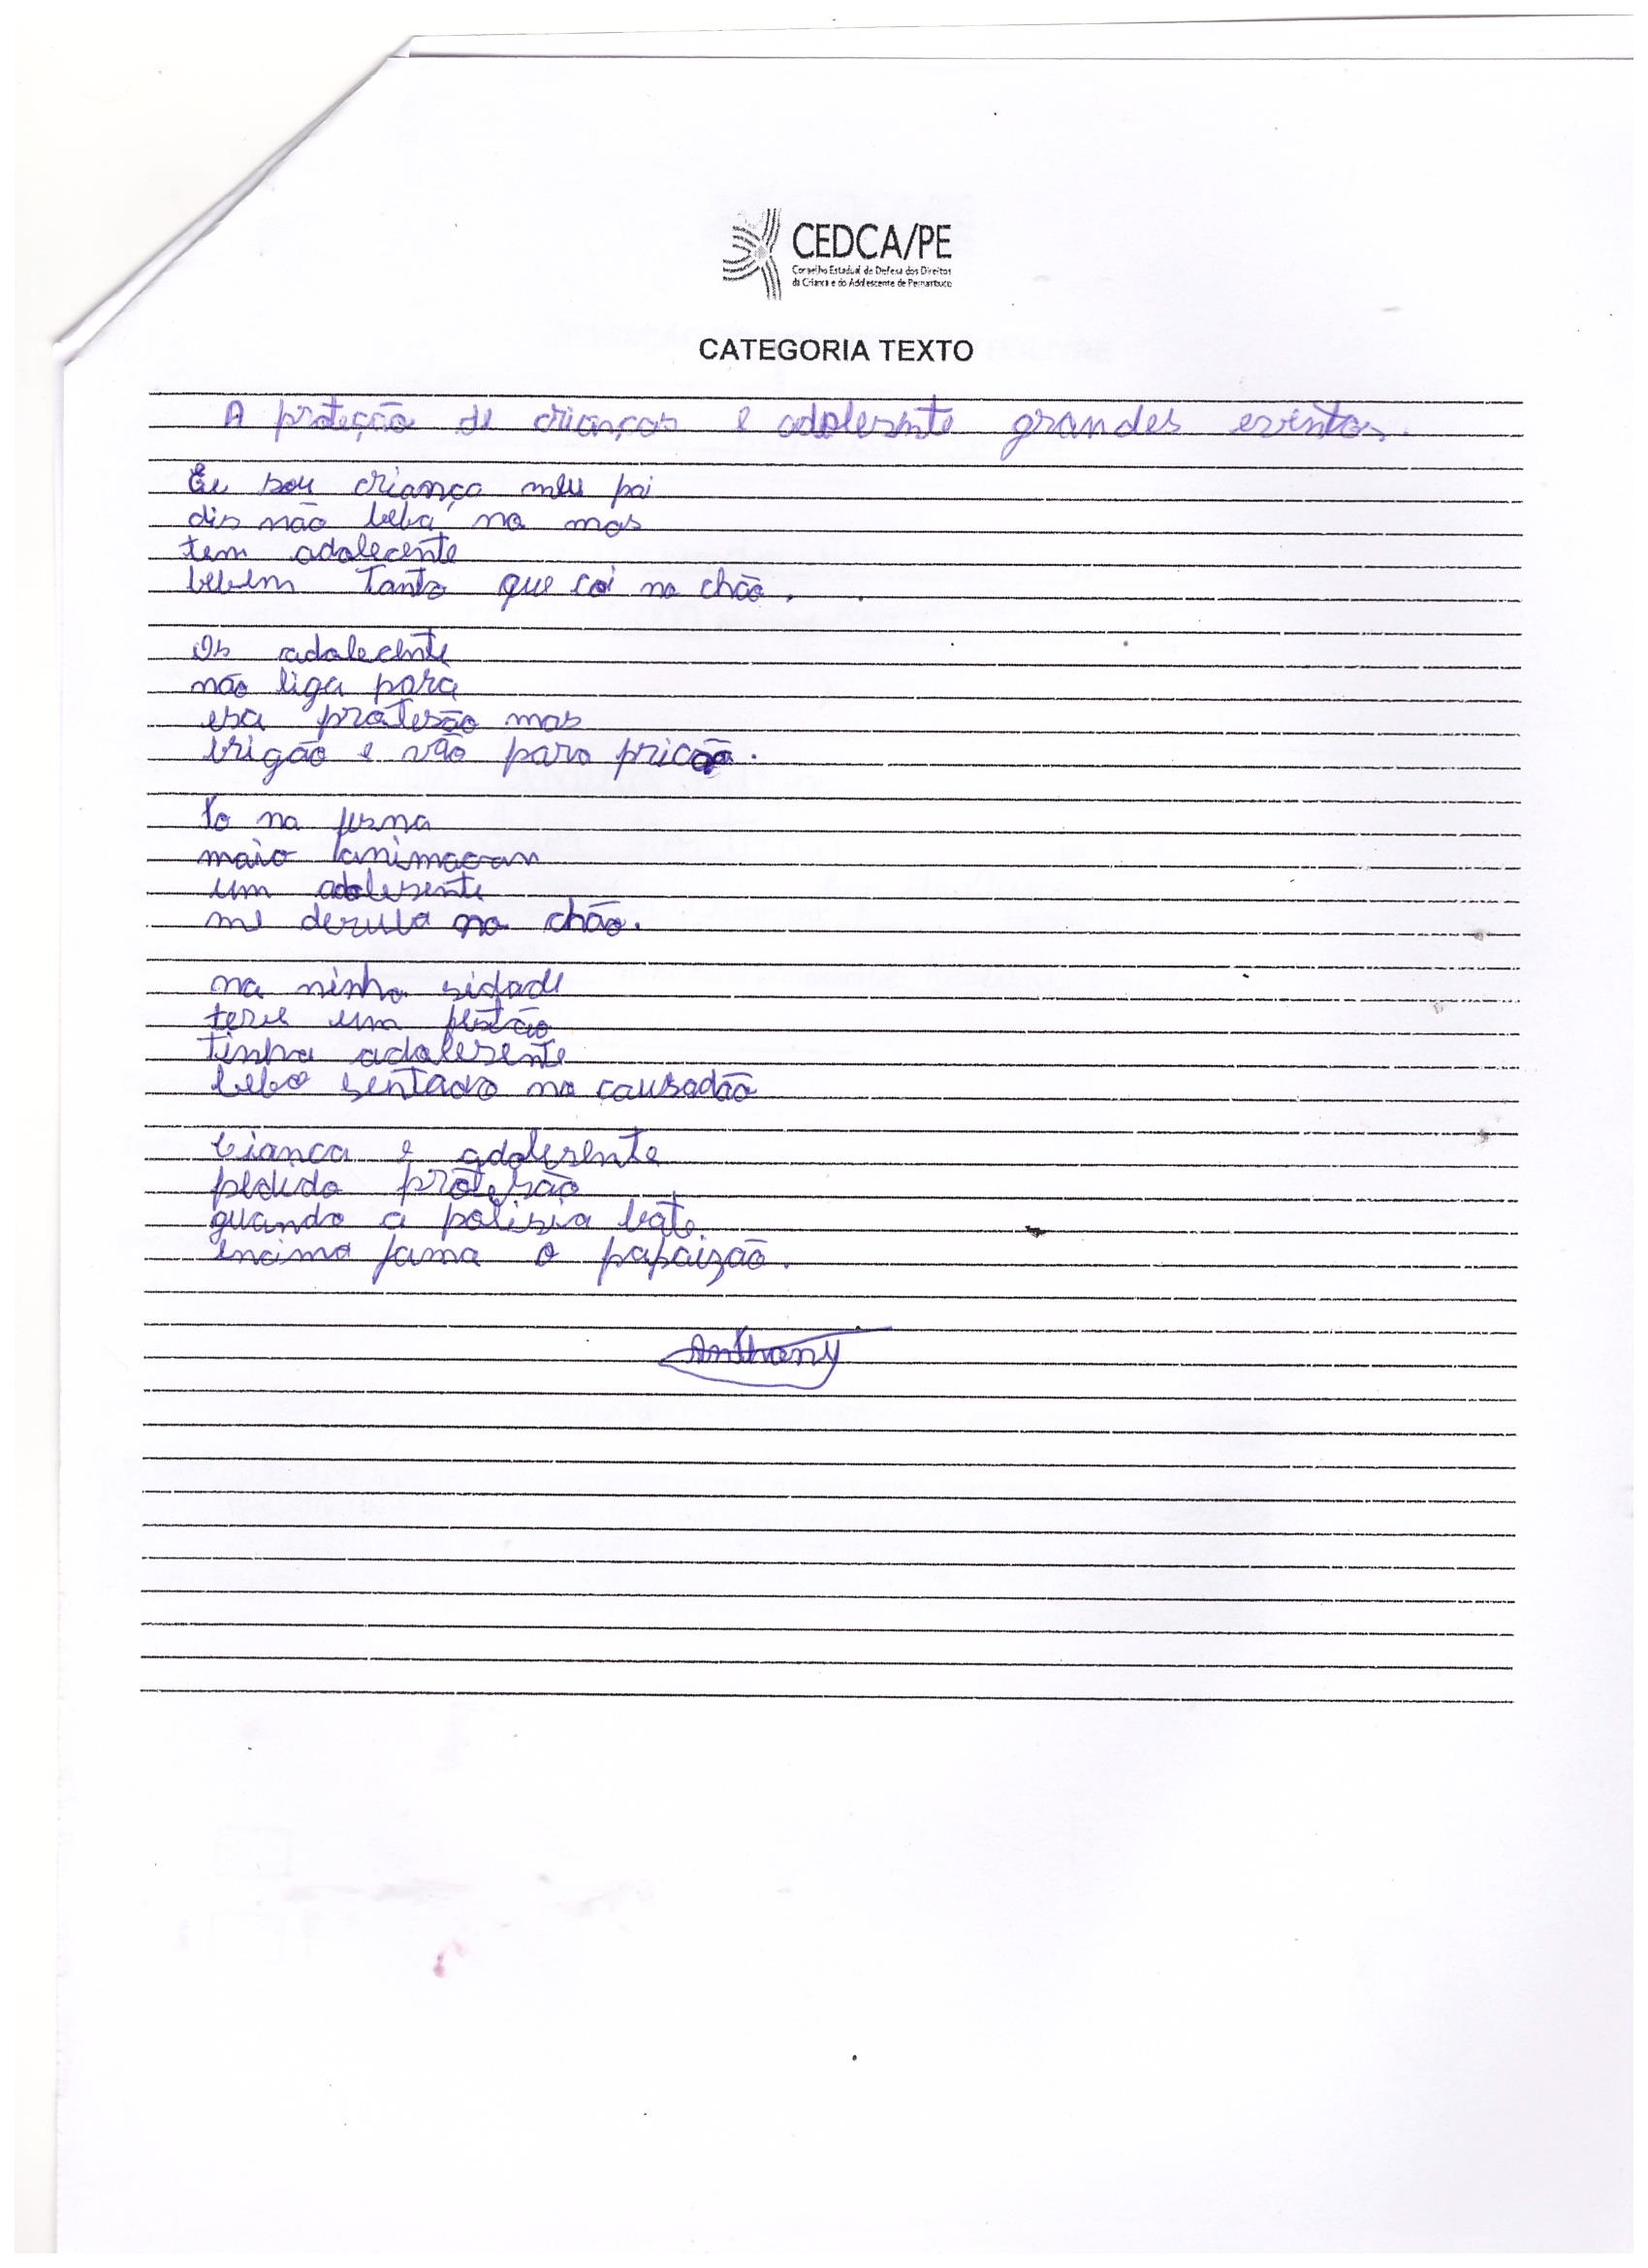 CEDCA/PE
Conselho Estadual de Defesa dos Direitos
da Criança e do Adolescente de Pernambuco
CATEGORIA TEXTO
A proteção de crianças e adolesente grandes eventos.
Eu sou criança meu pai
dis não beba no mas
tem adolecente
bebem Tanto que cai no chão.
Os adolecente
não liga para
esa protesão mas
brigão e vão para pricão.
To na festa
maio animacan
um adolesente
me deruba no chão.
na minha sidade
teve um festão
tinha adolesente
bebo sentado no causadão
Cianca e adolesente
pedido protesão
quando a polisia bate
encima fama o papaizão.
Anthony